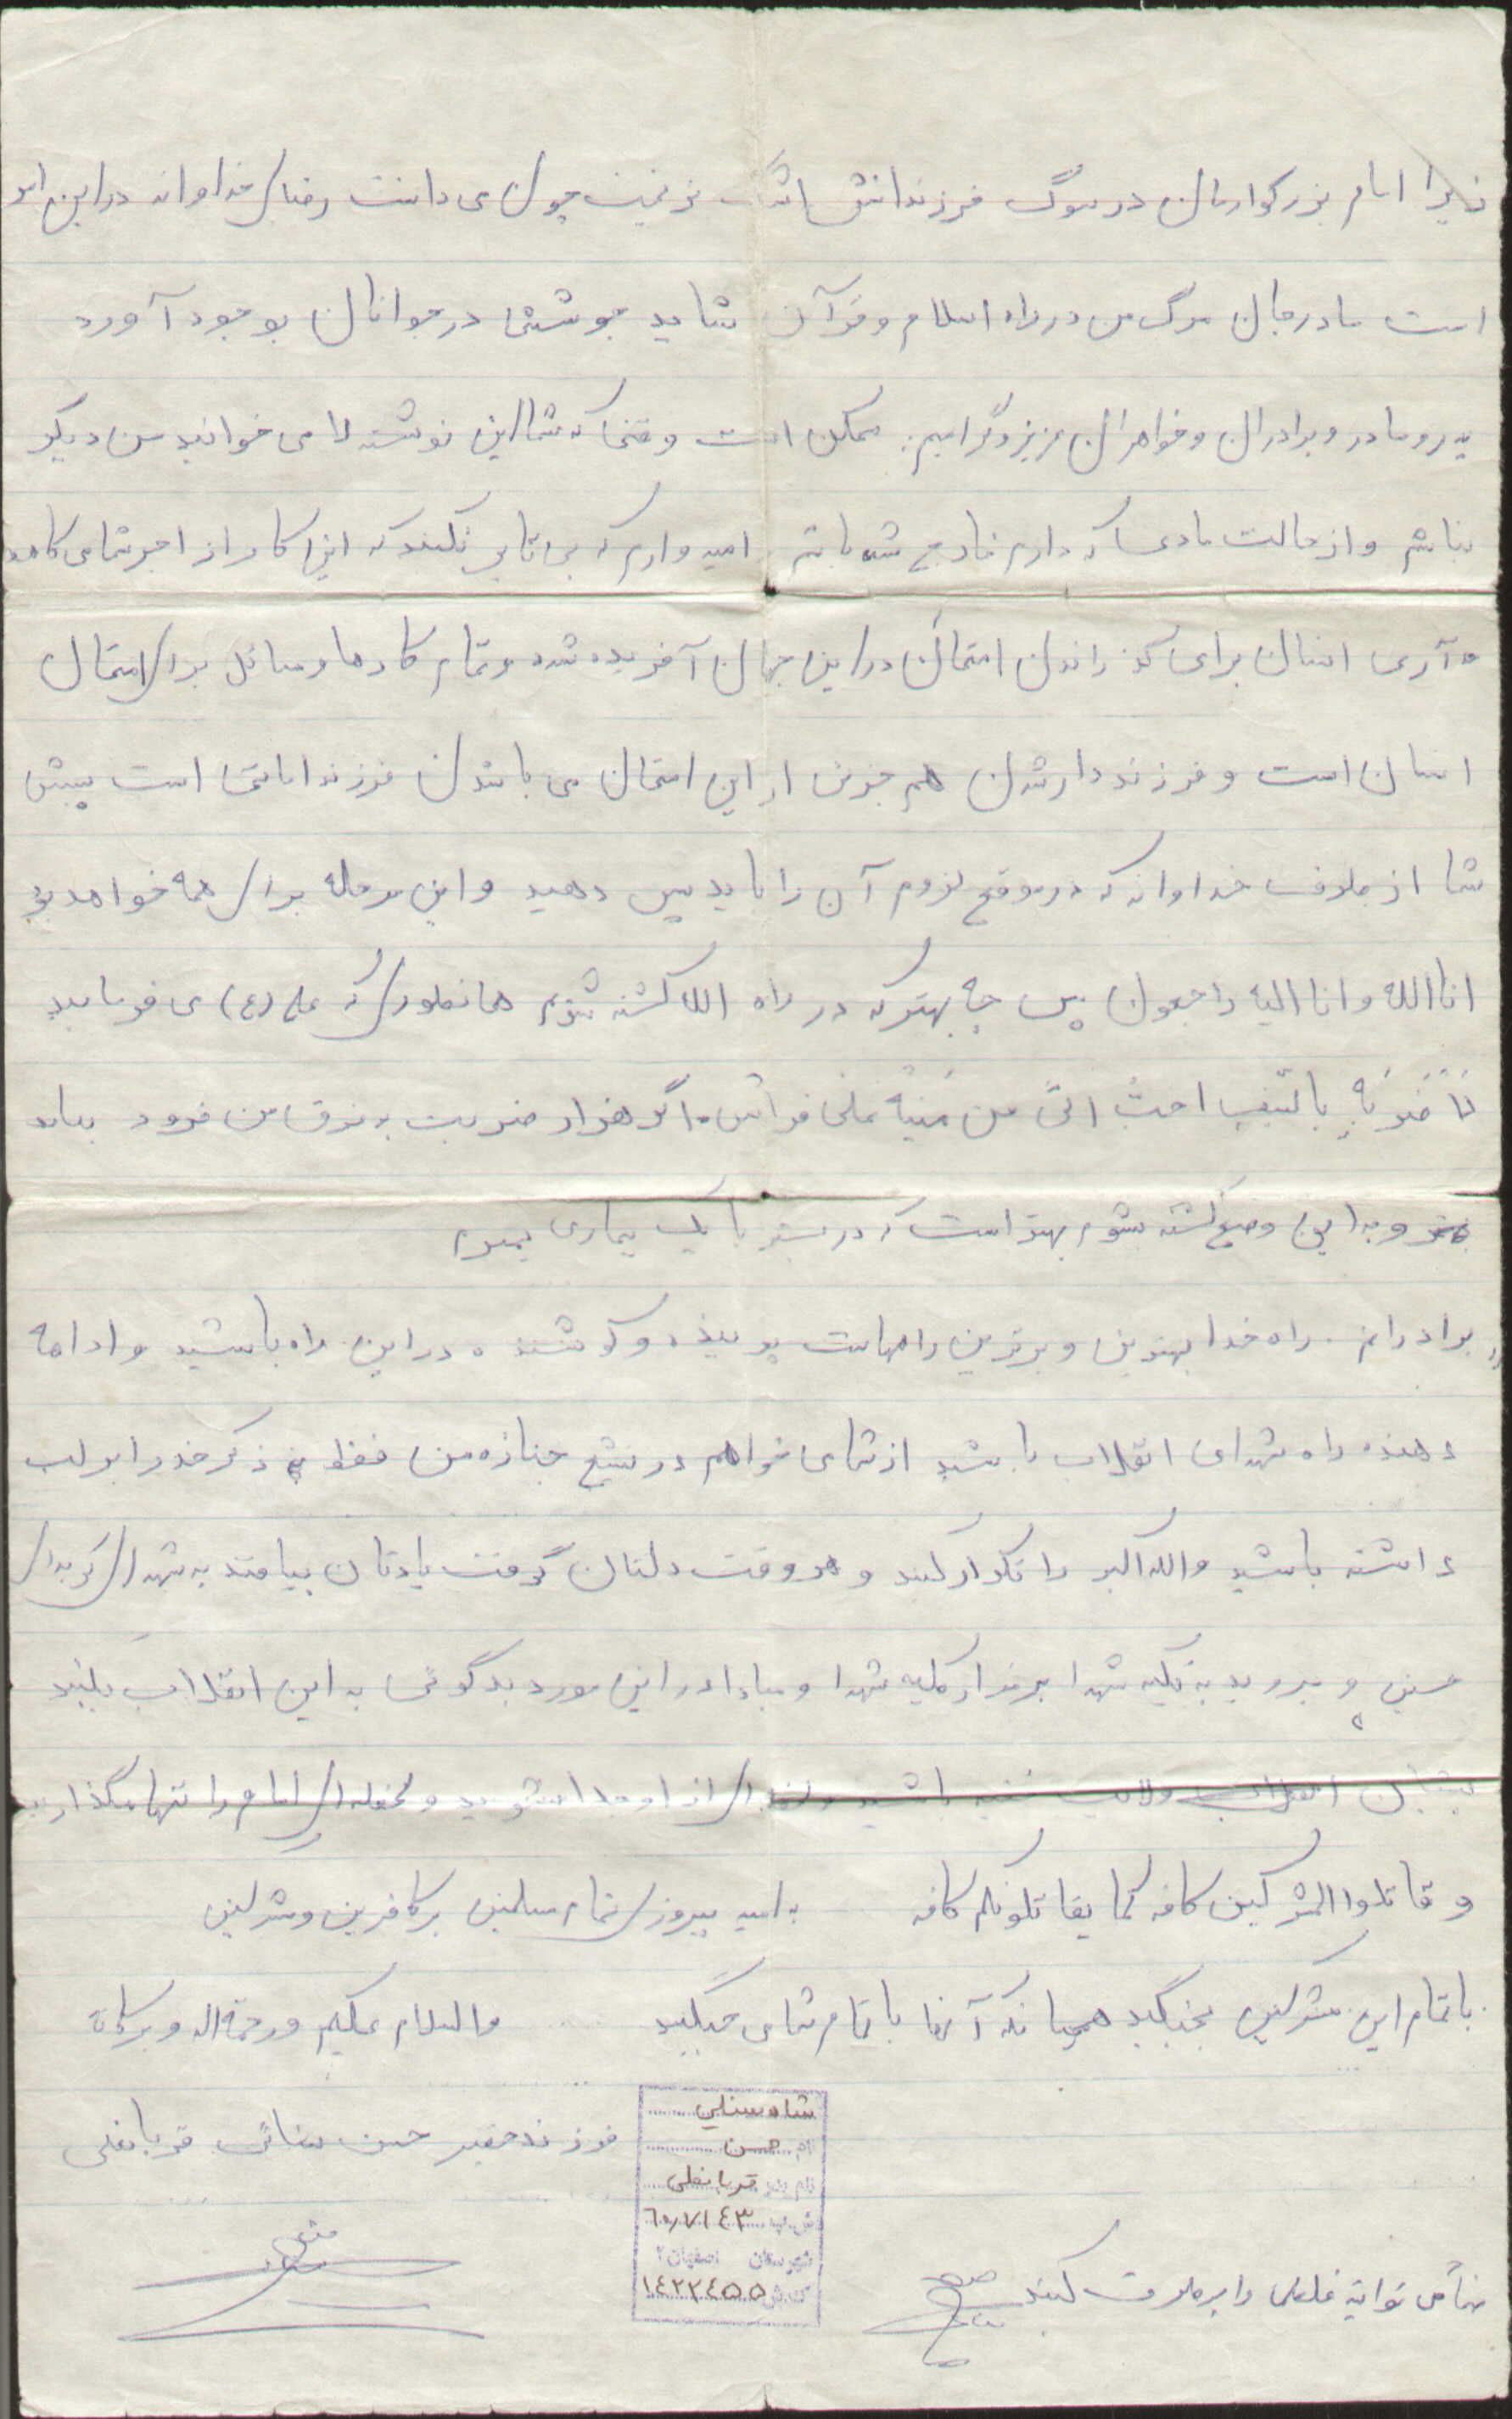 زیرا امام بزرگوارمان در سوگ فرزندانش اشک نریخت چون می دانست رضای خداوند در این امر
است مادرجان مرگ من در راه اسلام و قرآن شاید جوششی در جوانان بوجود آورد
پدر و مادر و برادران و خواهران عزیز و گرامیم: ممکن است وقتی که شما این نوشته را می خوانید من دیگر
نباشم و از حالت مادی که دارم خارج شده باشم امیدوارم که بی تابی نکنید که این کار از اجر شما می کاهد
آری انسان برای گذراندن امتحان در این جهان آفریده شده و تمام کارها و مسائل برای امتحان
انسان است و فرزند دار شدن هم جزئی از این امتحان می باشد فرزند امانتی است پیش
شما از طرف خداوند که در موقع لزوم آن را باید پس دهید و این مرحله برای همه خواهد بود
انا الله و انا الیه راجعون پس چه بهتر که در راه الله کشته شوم همانطوری که علی (ع) می فرماید
ضربه بالسیف احب الی من میته علی فراش اگر هزار ضربت به فرق من فرود بیاید
و به این وضع کشته بشوم بهتر است که در بستر با یک بیماری بمیرم
برادرانم راه خدا بهترین و برترین راههاست پوینده و کوشنده در این راه باشید و ادامه
دهنده راه شهدای انقلاب باشید از شما می خواهم در تشیع جنازه من فقط ذکر خدا را بر لب
داشته باشید و الله اکبر را تکرار کنید و هر وقت دلتان گرفت یادتان بیافتد به شهدای کربلای
حسینی و بروید به تکیه شهدا و مبادا در این مورد بدگوئی به این انقلاب بکنید
پشتیبان ولایت فقیه باشید و لحظه ای از او جدا نشوید و لحظه ای امام را تنها مگذارید
و قاتلوا المشرکین کافه کما یقاتلونکم کافه به امید پیروزی تمام مسلمین بر کافرین و مشرکین
با تمام این مشرکین بجنگید همچنانکه آنها با تمام شما می جنگید والسلام علیکم و رحمة اله و برکاته
فرزند حقیر حسن سنائی قربانعلی
شاه سنائی
نام حسن
نام پدر قربانعلی
شهرستان اصفهان ۲
۱٤۲۲٤۵۵
را برطرف کنید